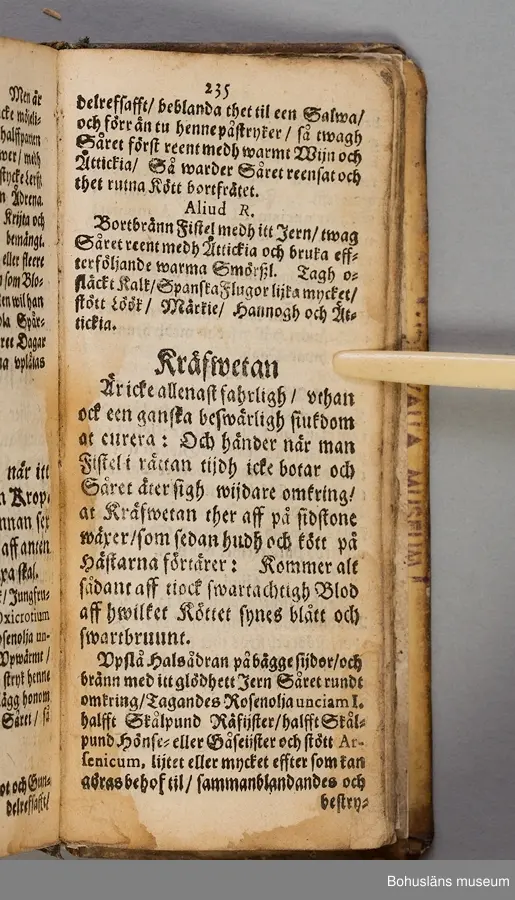 Men är
halffpannen
Ädrena.
Krijta och
bemängt.
eller fleere
som Blo-
ten wil han
Spår-
Dagar
vplåtas
när itt
Krop-
nnan sex
aff anten
skal.
/ Jungfru-
Oxicrotium
osenolja un-
Vpwärmt /
stryk henne
lägg honom
Såret / så
ot och Gum-
delreffafft/
235
delreffafft/ beblanda thet til een Salwa/
och förrän tu henne påstryker / så twagh
Såret först reent medh warmt Wijn och
Ättickia/ Så warder Såret reensat och
thet rutna Kött bortfrätet.
Aliud R.
Bortbränn Fistel medh itt Jern/ twag
Såret reent medh Ättickia och bruka eff-
terföljande warma Smörßl. Tagh o-
släckt Kalk/ Spanska Flugor lijka mycket/
stött Löök/ Märkie/ Hannogh och Ät-
tickia.
Kräfwetan
Är icke allenast fahrligh / vthan
ock een ganska beswärligh siukdom
at curera : Och händer när man
Fistel i rättan tijdh icke botar och
Såret äter sigh wijdare omkring/
at Kräfwetan ther aff på sidstone
wäxer/ som sedan hudh och kött på
Hästarna förtärer : Kommer alt
sådant aff tiock swartachtigh Blod
aff hwilket Köttet synes blått och
swartbruunt.
Vpslå Halsådran på bägge sijdor/ och
bränn med itt glödhett Jern Såret rundt
omkring/ Tagandes Rosenolja unciam I.
halfft Skålpund Räfijster/ halfft Skål-
pund Hönse- eller Gåseijster och stött Ar-
senicum, lijtet eller mycket effter som kan
göras behof til/ sammanblandandes och
bestry-
VALLA MUSEUM
Bohusläns museum